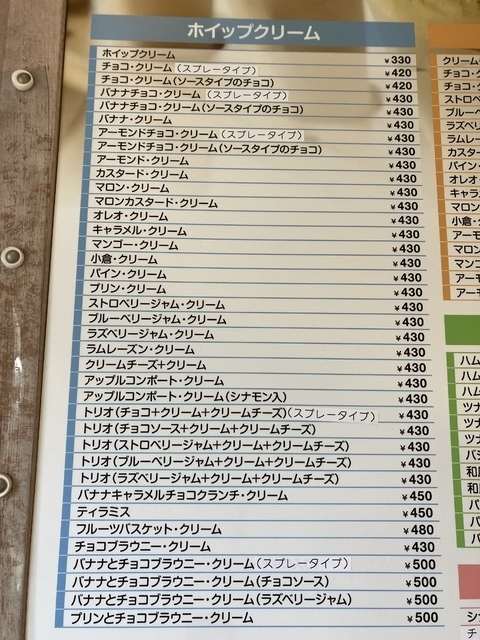 ホイップクリーム
ホイップクリーム ¥330
チョコ・クリーム(スプレータイプ) ¥420
チョコ・クリーム(ソースタイプのチョコ) ¥420
バナナチョコ・クリーム(スプレータイプ) ¥430
バナナチョコ・クリーム(ソースタイプのチョコ) ¥430
バナナ・クリーム ¥430
アーモンドチョコ・クリーム(スプレータイプ) ¥430
アーモンドチョコ・クリーム(ソースタイプのチョコ) ¥430
アーモンド・クリーム ¥430
カスタード・クリーム ¥430
マロン・クリーム ¥430
マロンカスタード・クリーム ¥430
オレオ・クリーム ¥430
キャラメル・クリーム ¥430
マンゴー・クリーム ¥430
小倉・クリーム ¥430
パイン・クリーム ¥430
プリン・クリーム ¥430
ストロベリージャム・クリーム ¥430
ブルーベリージャム・クリーム ¥430
ラズベリージャム・クリーム ¥430
ラムレーズン・クリーム ¥430
クリームチーズ+クリーム ¥430
アップルコンポート・クリーム ¥430
アップルコンポート・クリーム(シナモン入) ¥430
トリオ(チョコ+クリーム+クリームチーズ)(スプレータイプ) ¥430
トリオ(チョコソース+クリーム+クリームチーズ) ¥430
トリオ(ストロベリージャム+クリーム+クリームチーズ) ¥430
トリオ(ブルーベリージャム+クリーム+クリームチーズ) ¥430
トリオ(ラズベリージャム+クリーム+クリームチーズ) ¥430
バナナキャラメルチョコクランチ・クリーム ¥450
ティラミス ¥450
フルーツバスケット・クリーム ¥480
チョコブラウニー・クリーム ¥430
バナナとチョコブラウニー・クリーム(スプレータイプ) ¥500
バナナとチョコブラウニー・クリーム(チョコソース) ¥500
バナナとチョコブラウニー・クリーム(ラズベリージャム) ¥500
プリンとチョコブラウニー・クリーム ¥500